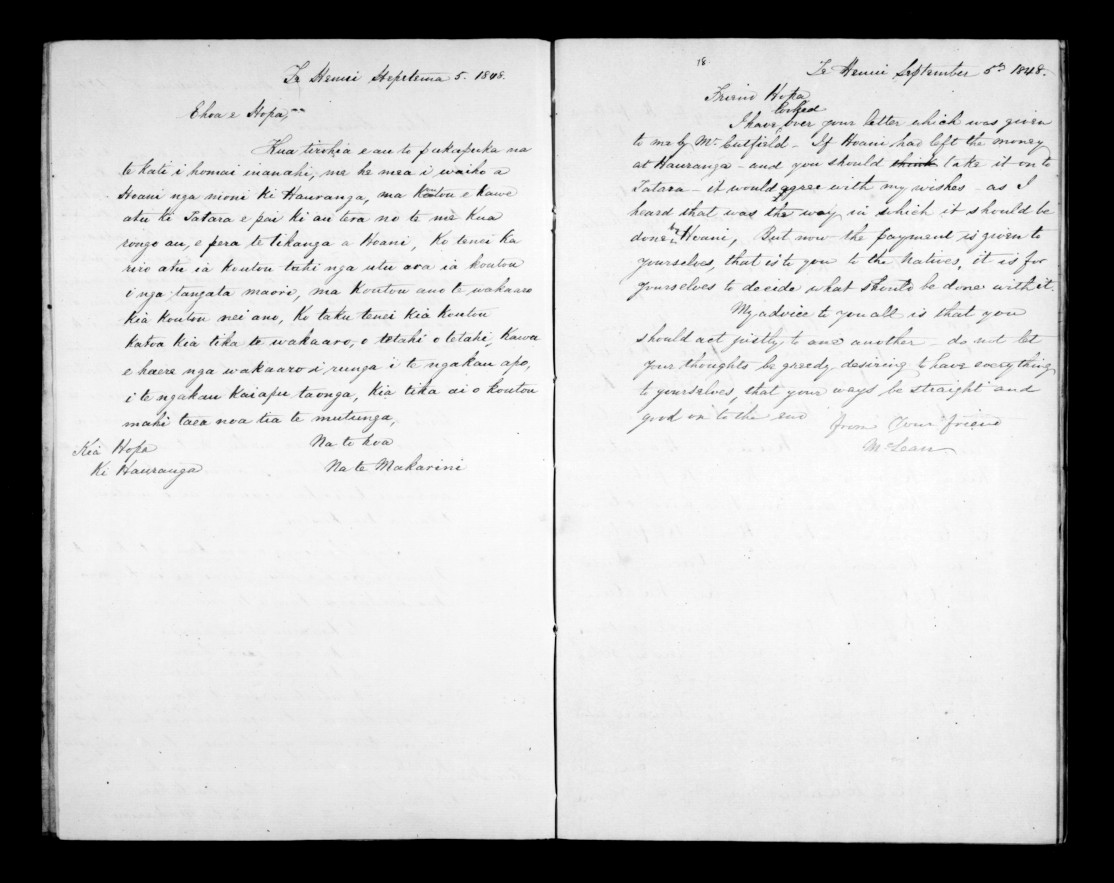 Te Henui Hepetema 5. 1848.
Ehoa e Hopa,
Kua tirohia e au te pukapuka na
te kati i homai inanahi, me he mea i waiho a
Hoani nga moni ki Hauranga, ma koutou e kawe
atu ki Tatara e pai ki au tera no te mea kua
rongo au, e pera te tikanga a Hoani, Ko tenei ka
riro atu ia koutou tahi nga utu ara ia koutou
i nga tangata maori, ma koutou ano te wakaaro
kia koutou nei ano, Ko taku tenei kia koutou
katoa kia tika te wakaaro, o tetahi o tetahi kawa
e haere nga wakaaro i runga i te ngakau apo,
i te ngakau kaiapu taonga, kia tika ai o koutou
mahi taea noa tia te mutunga,
Na to hoa
Kia Hopa
Ki Hauranga
Na te Makarini
18
Te Henui September 5th 1848.
Friend Hopa
I have looked over your letter which was given
to me by Mr Cutfield - If Hoani had left the money
at Hauranga - and you should think take it on to
Tatara - it would agree with my wishes - as I
heard that was the way in which it should be
done by Hoani, But now the payment is given to
yourselves, that is to you to the Natives, it is for
yourselves to decide what should be done with it.
My advice to you all is that you
should act justly to one another - do not let
your thoughts be greedy desiring to have everything
to yourselves, that your ways be straight and
good on to the end
from Your friend
McLean